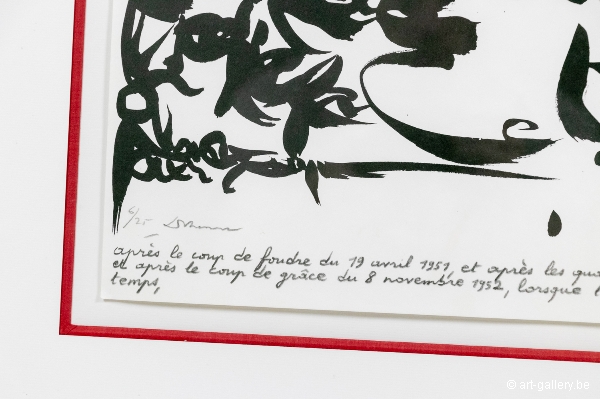 6/25
après le coup de foudre du 19 avril 1951, et après les
et après le coup de grâce du 8 novembre 1952, lorsque
temps,
© art-gallery.be